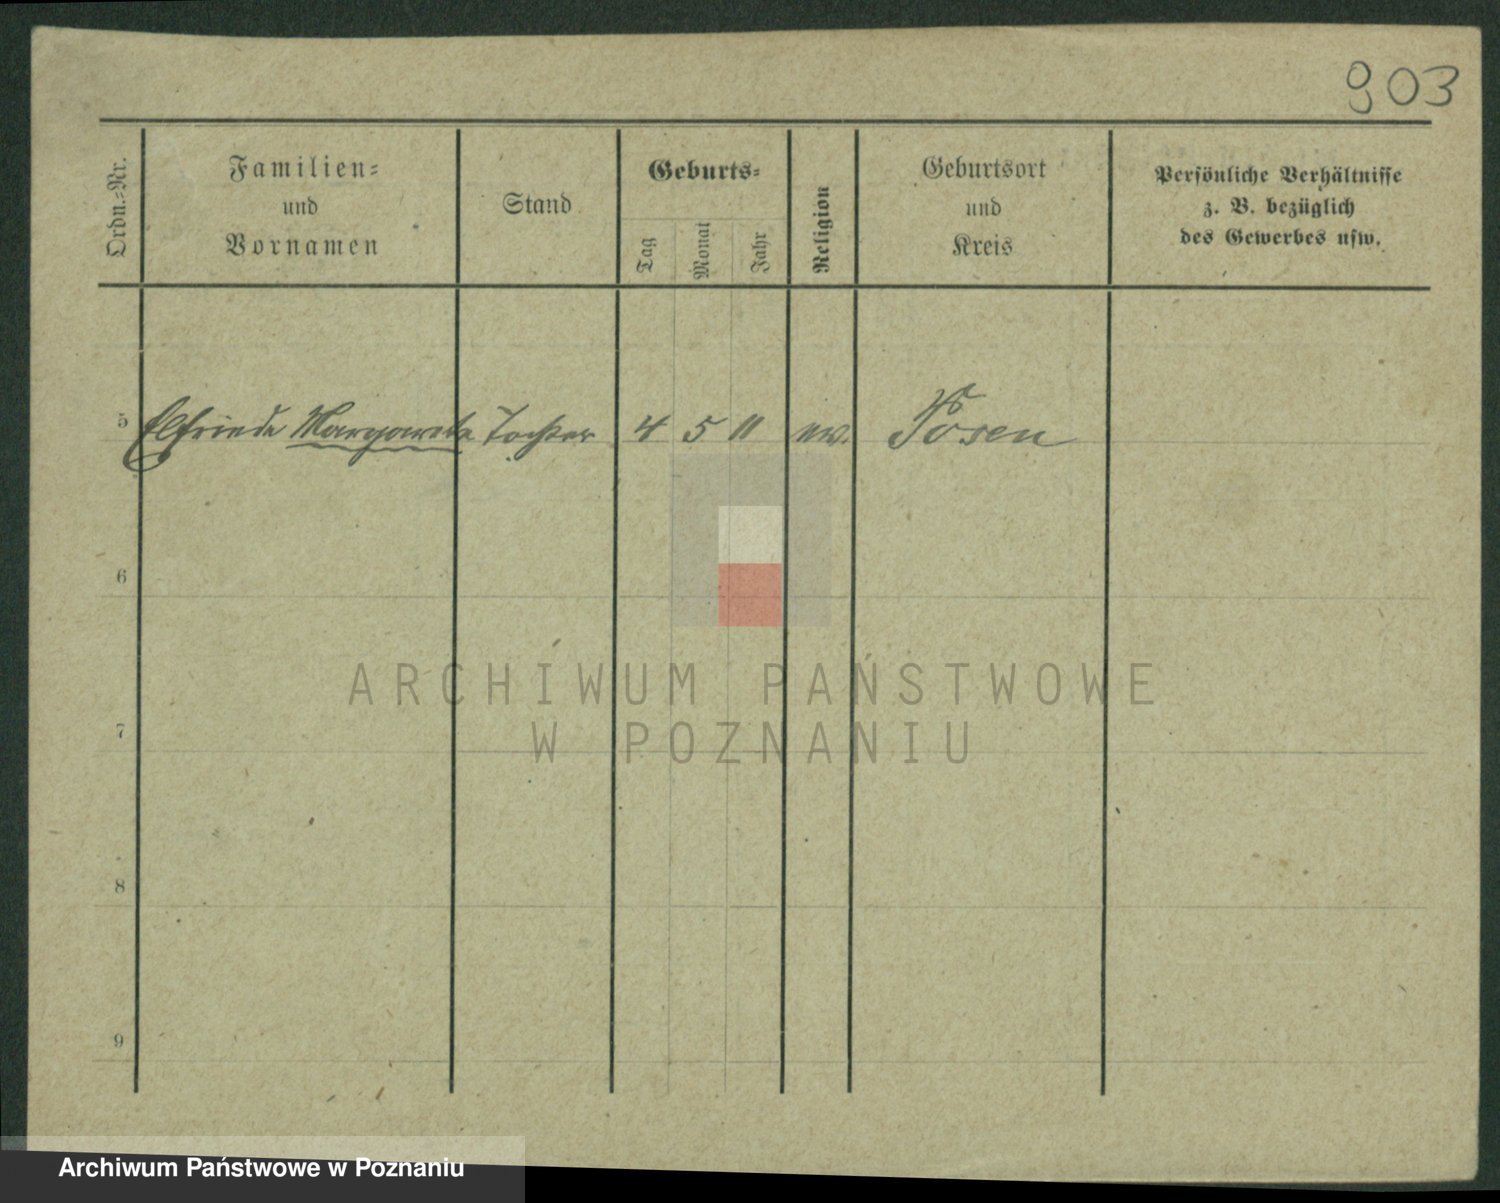 903
Ordn.-Nr.
Familien-
und
Vornamen
Stand
Geburts-
Tag
Monat
Jahr
Religion
Geburtsort
und
Kreis
Persönliche Verhältnisse
z. B. bezüglich
des Gewerbes usw.
5 Elfriede Margarete Tochter 4 5 11 ev. Posen
6
7
8
9
ARCHIWUM PAŃSTWOWE
W POZNANIU
Archiwum Państwowe w Poznaniu